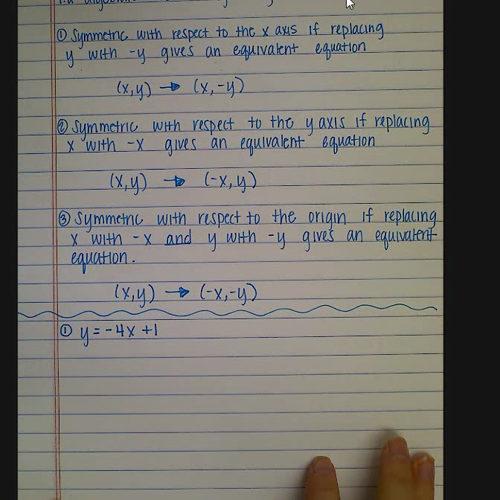 ① Symmetric with respect to the x axis if replacing
y with -y gives an equivalent equation
(x,y) → (x,-y)
② Symmetric with respect to the y axis if replacing
x with -x gives an equivalent equation
(x,y) → (-x,y)
③ Symmetric with respect to the origin if replacing
x with -x and y with -y gives an equivalent
equation.
(x,y) → (-x,-y)
① y = -4x +1